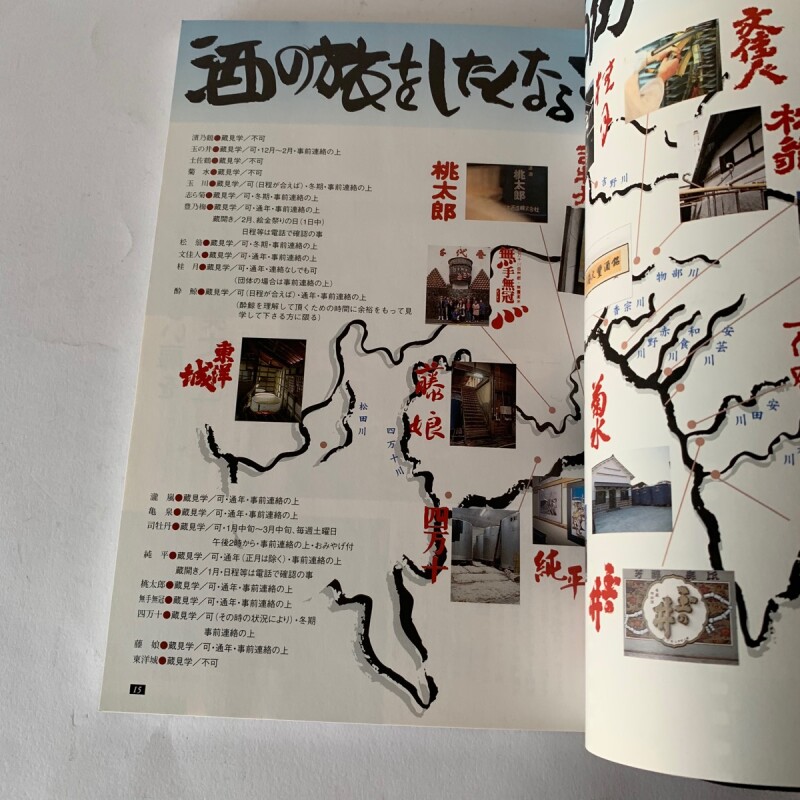 酒の旅をしたくなる
濱乃鶴●蔵見学／不可
玉の井●蔵見学／可・12月〜2月・事前連絡の上
土佐鶴●蔵見学／不可
菊 水●蔵見学／不可
玉 川●蔵見学／可（日程が合えば）・冬期・事前連絡の上
志ら菊●蔵見学／可・冬期・事前連絡の上
豊乃梅●蔵見学／可・通年・事前連絡の上
蔵開き／2月、絵金祭りの日（1日中）
日程等は電話で確認の事
松 翁●蔵見学／可・冬期・事前連絡の上
文佳人●蔵見学／可・通年・事前連絡の上
桂 月●蔵見学／可・通年・連絡なしでも可
（団体の場合は事前連絡の上）
酔 鯨●蔵見学／可（日程が合えば）・通年・事前連絡の上
（酔鯨を理解して頂くための時間に余裕をもって見
学して下さる方に限る）
桃太郎
桃太郎
千代登
無手無冠
東洋城
藤娘
松田川
四万十川
四万十
純平
瀧 嵐●蔵見学／可・通年・事前連絡の上
亀 泉●蔵見学／可・通年・事前連絡の上
司牡丹●蔵見学／可・1月中旬〜3月中旬、毎週土曜日
午後2時から・事前連絡の上・おみやげ付
純 平●蔵見学／可・通年（正月は除く）・事前連絡の上
蔵開き／1月・日程等は電話で確認の事
桃太郎●蔵見学／可・通年・事前連絡の上
無手無冠●蔵見学／可・通年・事前連絡の上
四万十●蔵見学／可（その時の状況により）・冬期
事前連絡の上
藤 娘●蔵見学／可・通年・事前連絡の上
東洋城●蔵見学／不可
15
文佳人
桂月
松翁
吉野川
物部川
香宗川
赤野川
和食川
安芸川
安田川
菊水
玉の井